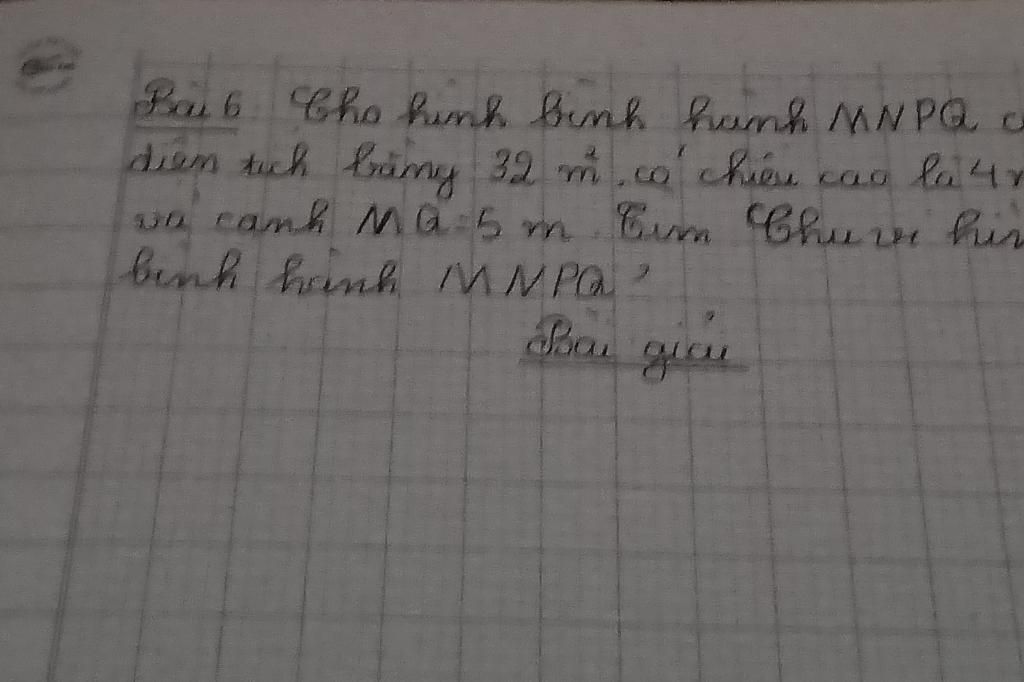 Bài 6 Cho hình bình hành MNPQ c
diện tích bằng 32 m². có chiều cao là 4
và cạnh MQ = 5 m. Tìm Chu vi hìn
bình hành MNPQ?
Bài giải